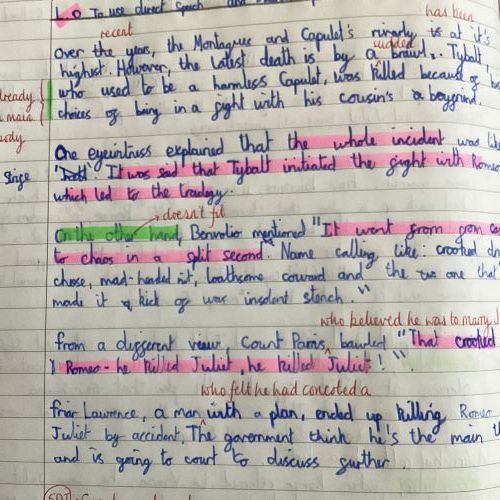 L.O To use direct speech and
recent
has been
Over the years, the Montagues and Capulet's rivarly is at it's
sudden
highest. However, the latest death is by a brawl. Tybalt,
already
who used to be a harmless Capulet, was killed because of
main
choices of being in a fight with his cousin's a boyfriend.
body
One eyewitness explained that the whole incident was
Since
It was said that Tybalt initiated the fight with Romeo
which led to the tradegy.
doesn't fit
On the other hand, Benvolio mentioned "It went from from
to chaos in a split second. Name calling, like: crooked
chose, mad-headed nit, loathsome coward and the one that
made it kick of was insolent stench."
who believed he was to marry
from a different view, Count Paris, bawled "That crooked
Romeo - he killed Juliet, he killed Juliet!"
who felt he had concocted a
friar Lawrence, a man with a plan, ended up killing Romeo
Juliet by accident, The government think he's the main
and is going to court to discuss further.